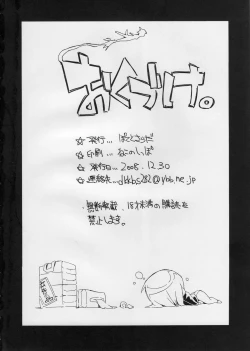 おくづけ。
☆ 発行… ぱとさらだ
☆ 印刷… ねこのしっぽ
☆ 発行日… 2008.12.30
☆ 連絡先… dbkbs282@ybb.ne.jp
・無断転載、18才未満の購読を
禁止します。